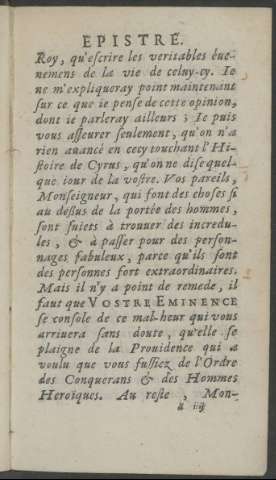 EPISTRE.
Roy, qu'escrire les veritables éue-
nemens de la vie de celuy-cy. Ie
ne m'expliqueray point maintenant
sur ce que ie pense de cette opinion,
dont ie parleray ailleurs ; Ie puis
vous asseurer seulement, qu'on n'a
rien auancé en cecy touchant l'Hi-
stoire de Cyrus, qu'on ne dise quel-
que iour de la vostre. Vos pareils,
Monseigneur, qui font des choses si
au deſſus de la portée des hommes,
sont suiets à trouuer des incredu-
les, & à passer pour des person-
nages fabuleux, parce qu'ils sont
des personnes fort extraordinaires.
Mais il n'y a point de remede, il
faut que VOSTRE EMINENCE
se console de ce mal-heur qui vous
arriuera sans doute, qu'elle se
plaigne de la Prouidence qui a
voulu que vous fussiez de l'Ordre
des Conquerans & des Hommes
Heroïques. Au reste, Mon-
à iiij